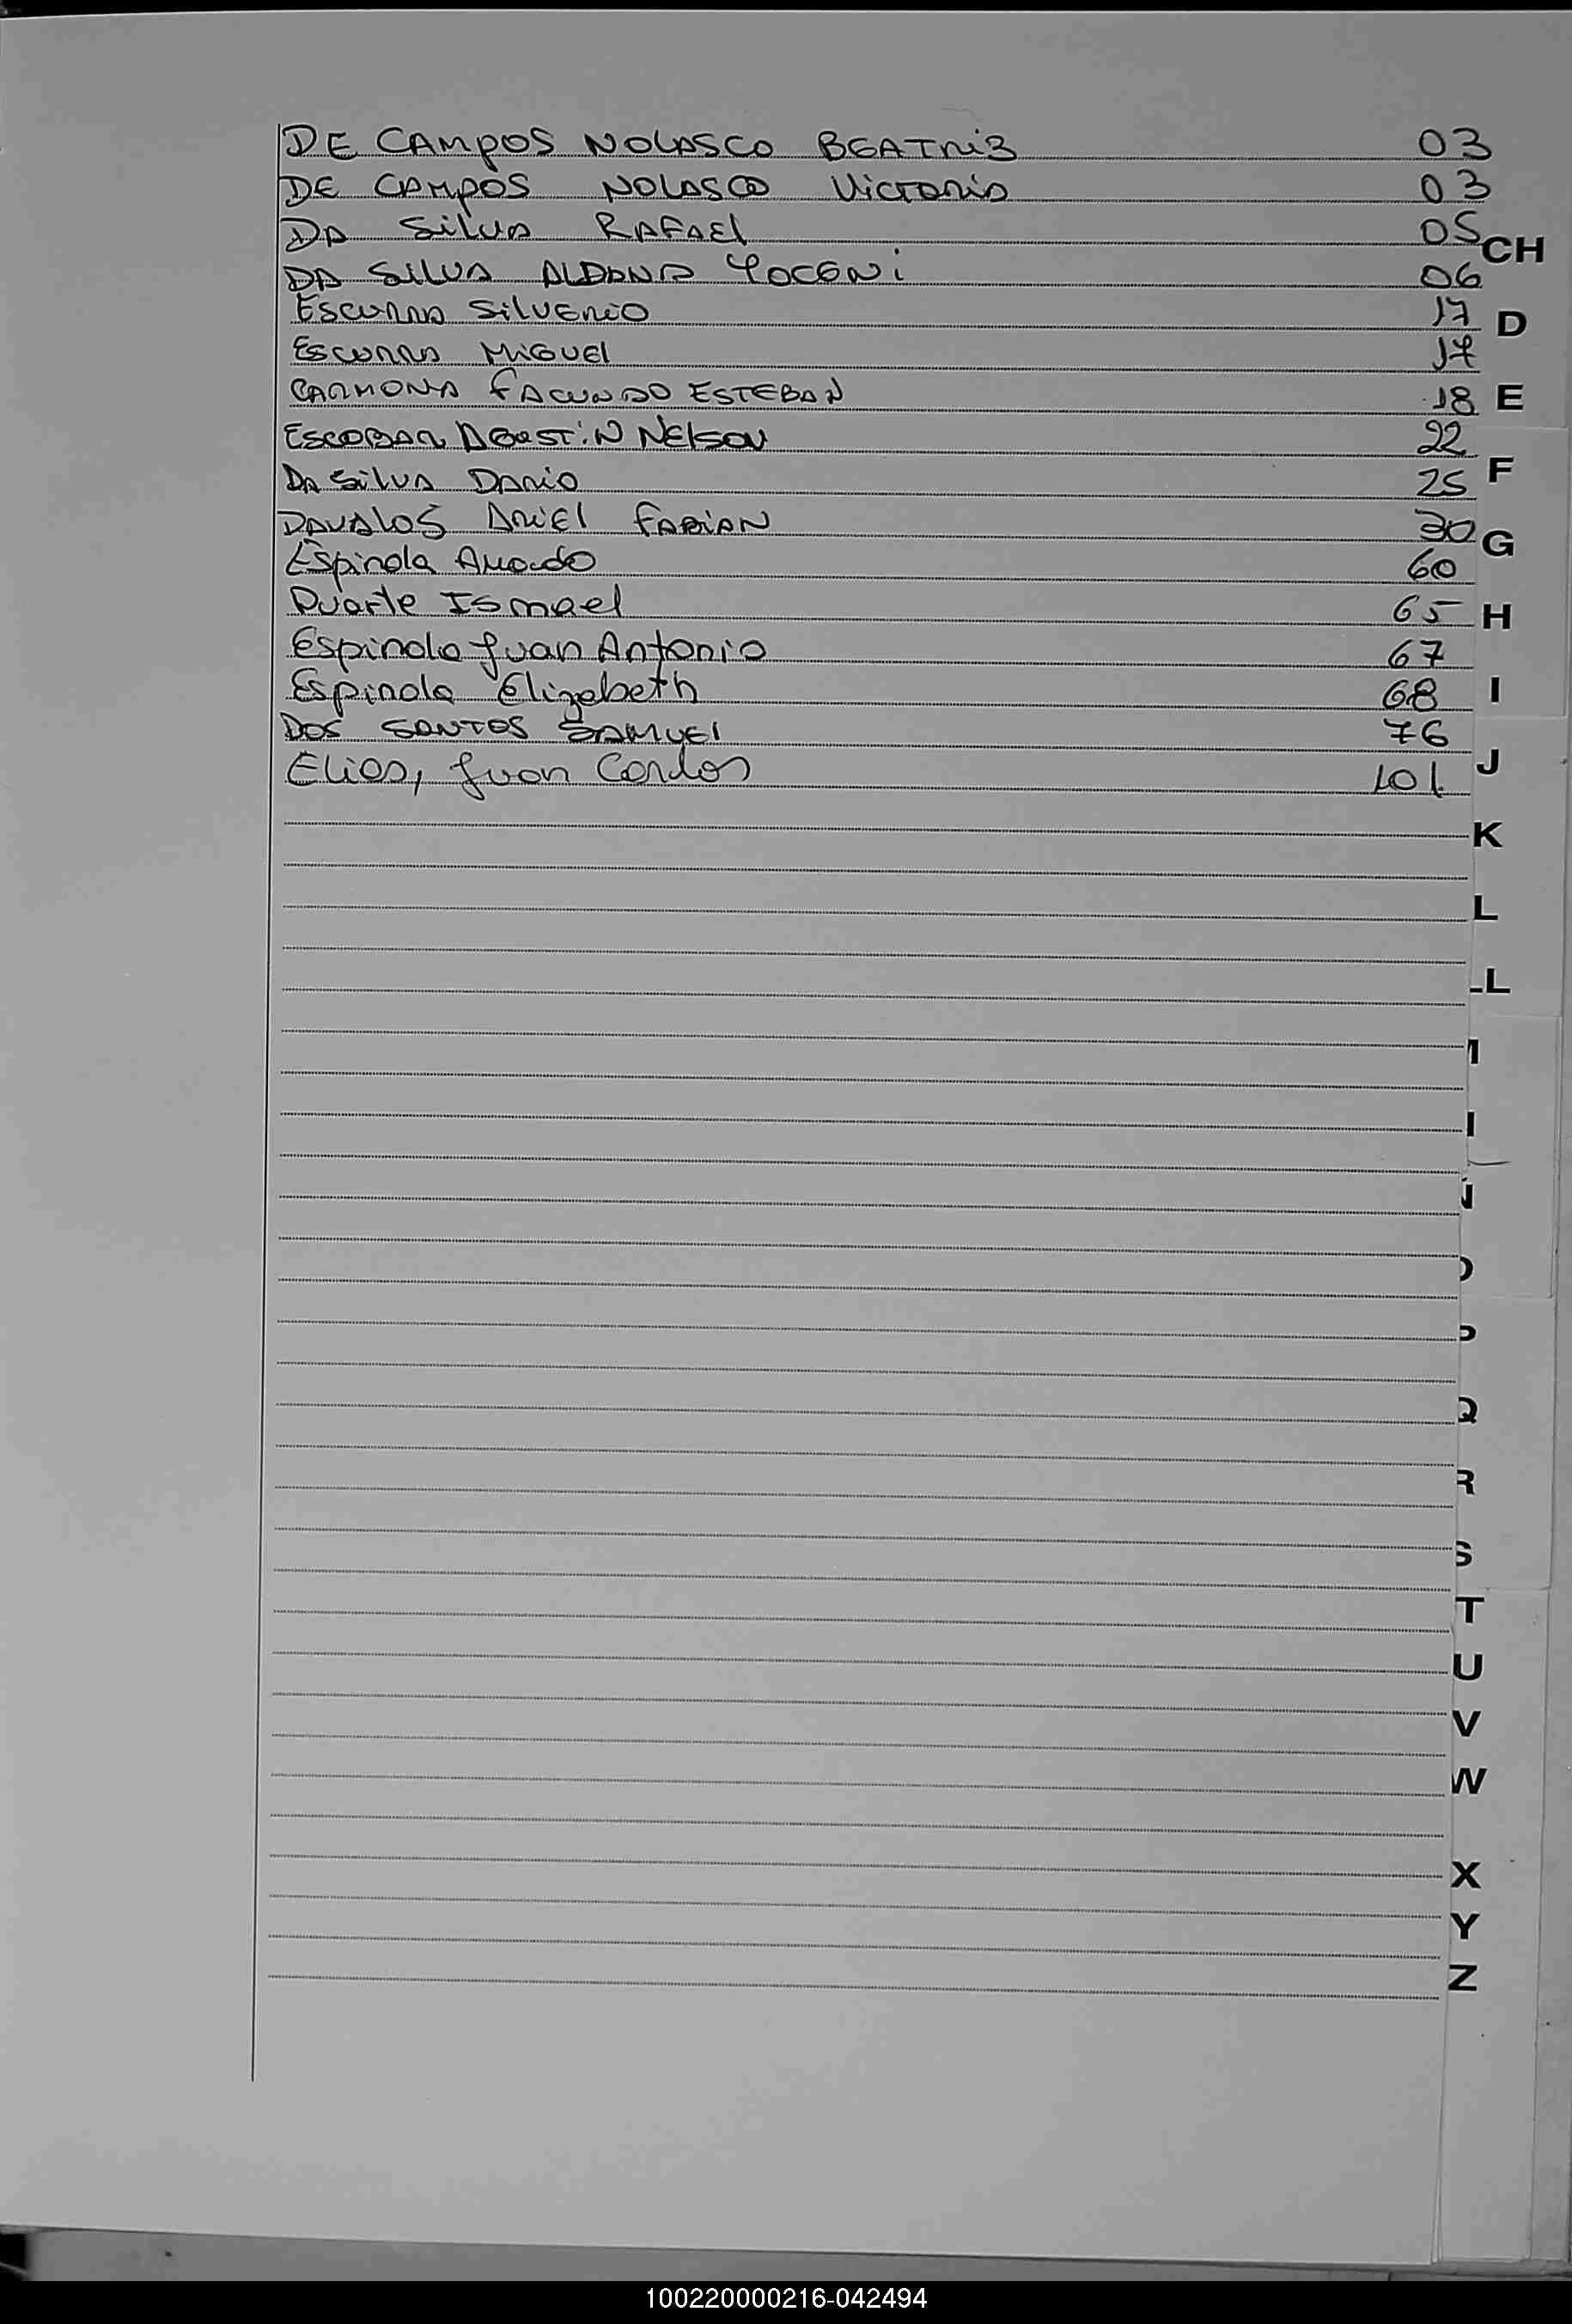 DE CAMPOS NOLASCO BEATRIZ 03
DE CAMPOS NOLASCO VICTORIA 03
DA SILVA RAFAEL 05
CH
DA SILVA ALDANA YOCENI 06
ESCURRA SILVERIO 17
D
ESCURRA MIGUEL 17
CARMONA FACUNDO ESTEBAN 18
E
ESCOBAR AGUSTIN NELSON 22
DA SILVA DARIO 25
F
DAVALOS ARIEL FABIAN 30
G
Espinola Amado 60
Duarte Ismael 65
H
Espinola Juan Antonio 67
Espinola Elizabeth 68
I
DOS SANTOS SAMUEL 76
J
Elias, Juan Carlos 101
K
L
LL
M
N
Ñ
O
P
Q
R
S
T
U
V
W
X
Y
Z
100220000216-042494